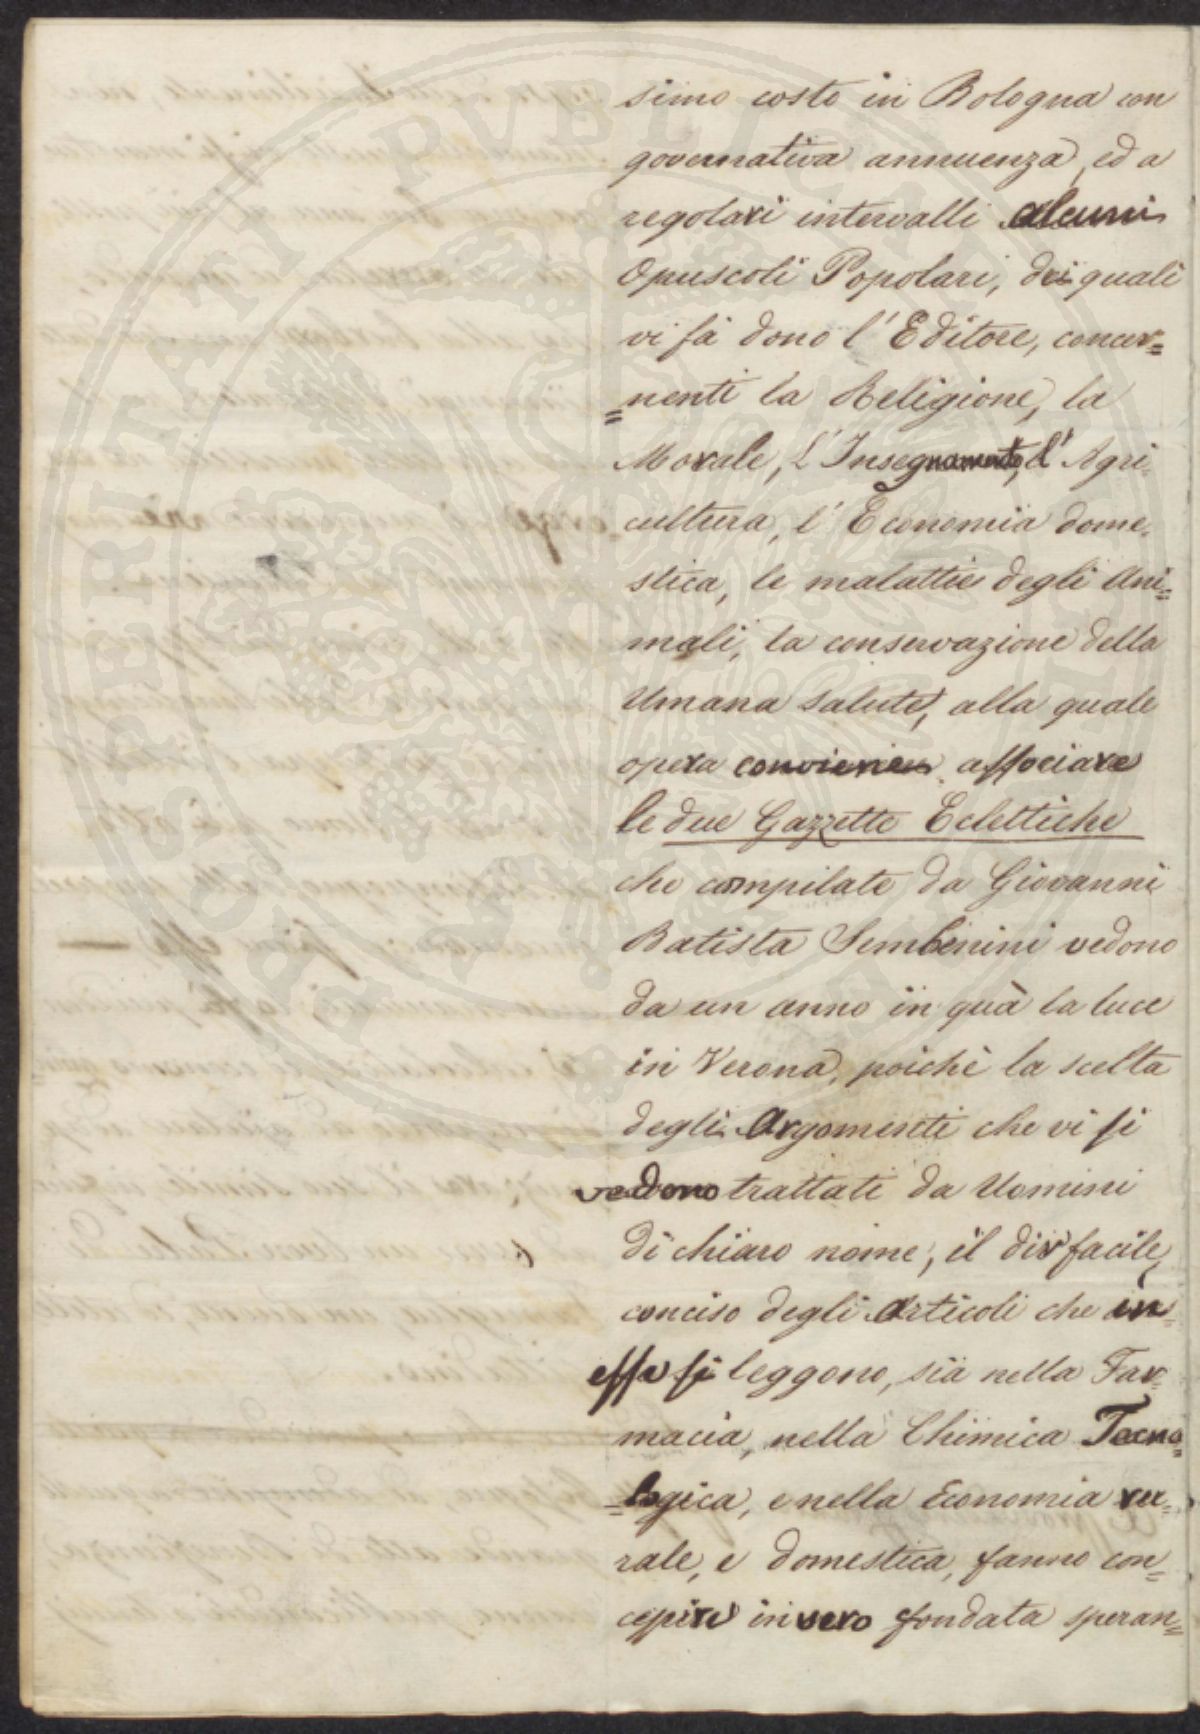 simo costo in Bologna con
governativa annuenza, ed a
regolari intervalli alcuni
Opuscoli Popolari, dei quali
vi fà dono l'Editore, concer=
=nenti la Religione, la
Morale, l'Insegnamento, l'Agri-
cultura, l'Economia dome-
stica, le malattie degli Ani=
mali, la conservazione della
Umana Salute, alla quale
opera conviene associare
le due Gazzette Eclettiche
che compilate da Giovanni
Batista Sembenini vedono
da un anno in quà la luce
in Verona, poichè la scelta
degli Argomenti che vi si
vedono trattati da Uomini
di chiaro nome, il dir facile,
conciso degli Articoli che in
esse si leggono, sia nella Far-
macia, nella Chimica Tecno=
=logica, e nella Economia ru=
rale, e domestica, fanno con=
cepire in vero fondata speran=
PROSPERITATI PVBLICAE